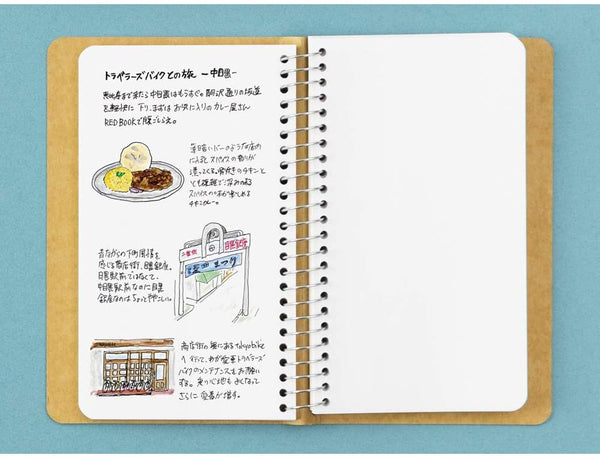 トラベラーズバイクとの旅 －中目黒－
恵比寿まで来たら中目黒はもうすぐ。駒沢通りの坂道
を軽快に下り、まずはお気に入りのカレー屋さん
RED BOOKで腹ごしらえ。
薄暗いバーのような店内
に入るとスパイスの香りが
漂ってくる。骨付きのチキン
とても複雑で深みのある
スパイスの味が楽しめる
チキンカレー。
昔ながらの下町風情を
感じる商店街、目黒銀座。
目黒駅前ではなくて、
中目黒駅前なのに目黒
銀座なのはちょっとややこしい。
目黒銀座
まつり
商店街の奥にあるtokyobike
へ行って、わが愛車トラベラーズ
バイクのメンテナンスをお願い
する。乗り心地もよくなって
さらに愛着が増す。